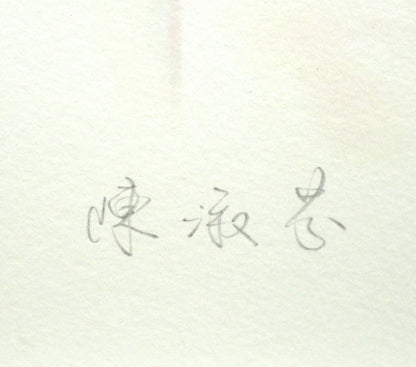 陳淑芬